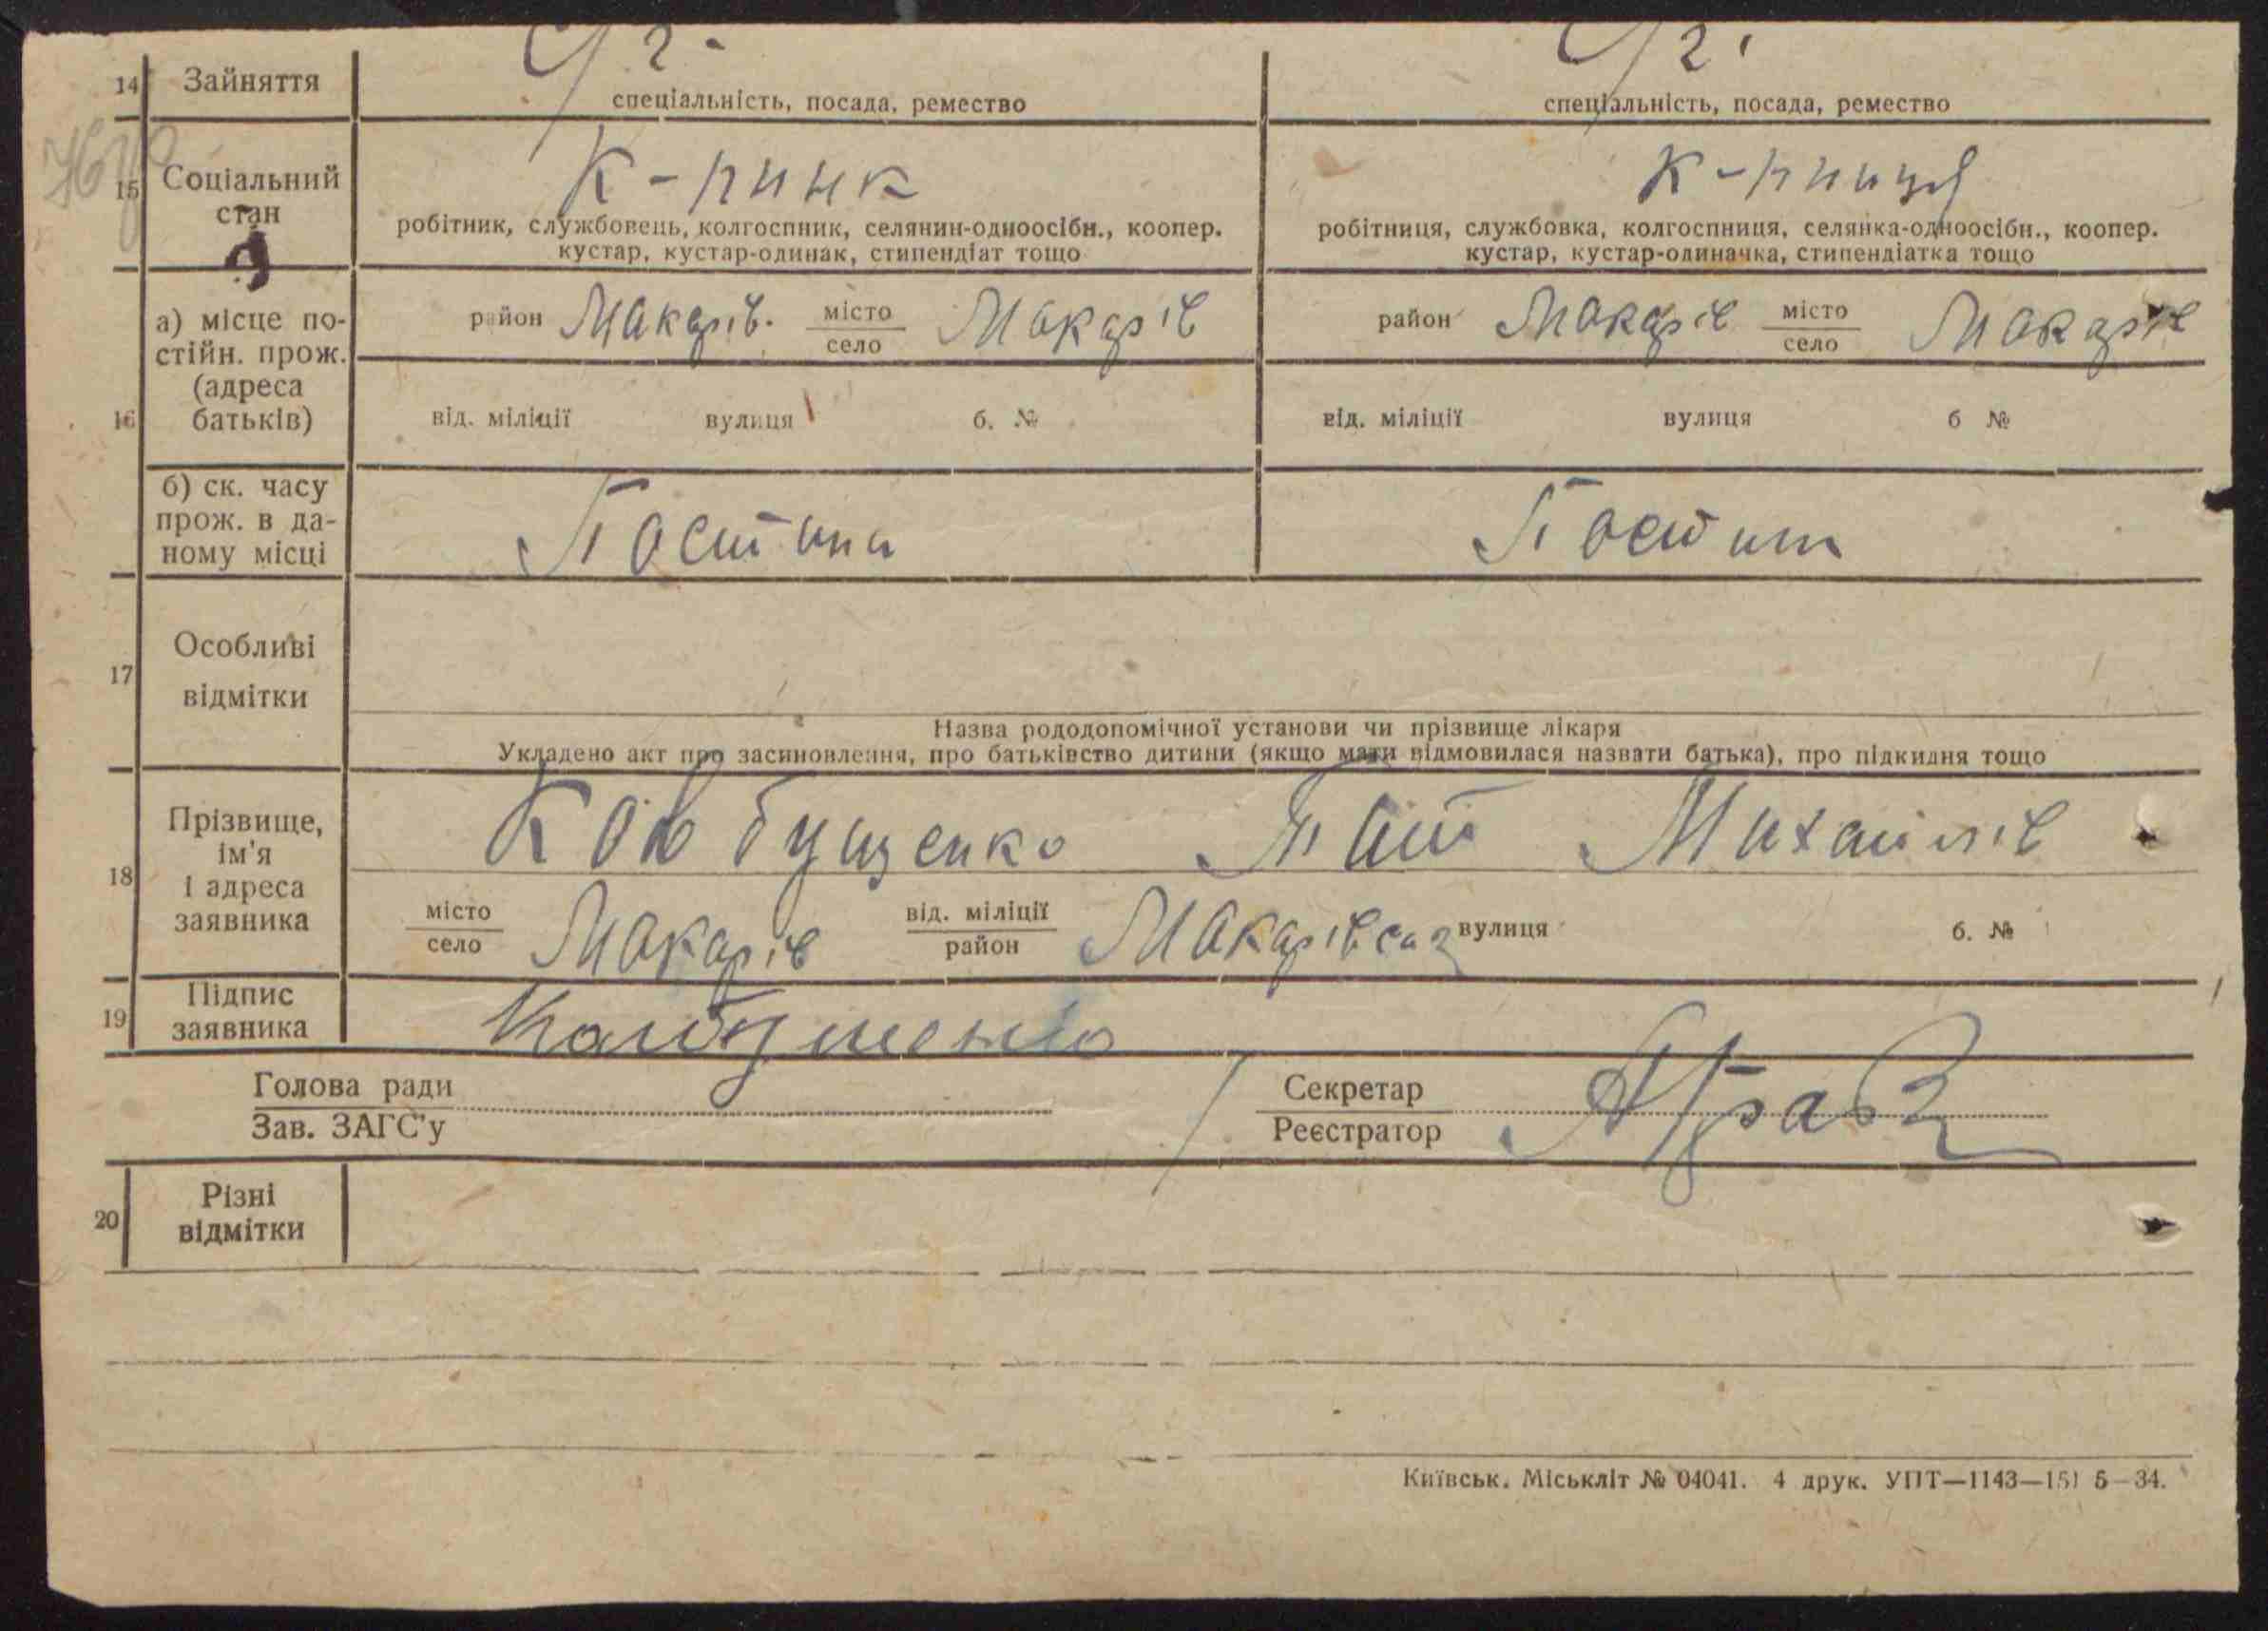 14 Зайняття С/г. С/г.
спеціальність, посада, ремество спеціальність, посада, ремество
15 Соціальний стан К-пник К-пниця
робітник, службовець, колгоспник, селянин-одноосібн., коопер. робітниця, службовка, колгоспниця, селянка-одноосібн., коопер.
кустар, кустар-одинак, стипендіат тощо кустар, кустар-одиначка, стипендіатка тощо
16 а) місце по-
стійн. прож.
(адреса
батьків)
район Макарів. місто Макарів район Макарів місто Макарів
село село
від. міліції вулиця б. № від. міліції вулиця б №
б) ск. часу
прож. в да-
ному місці
17 Особливі
відмітки
Назва рододопомічної установи чи прізвище лікаря
Укладено акт про засиновлення, про батьківство дитини (якщо мати відмовилася назвати батька), про підкидня тощо
18 Прізвище,
ім'я
і адреса
заявника
місто Макарів від. міліції вулиця б. №
село район
19 Підпис
заявника
Голова ради Секретар
Зав. ЗАГС'у Реєстратор
20 Різні
відмітки
Київськ. Міськліт № 04041. 4 друк. УПТ—1143—151 5—34.